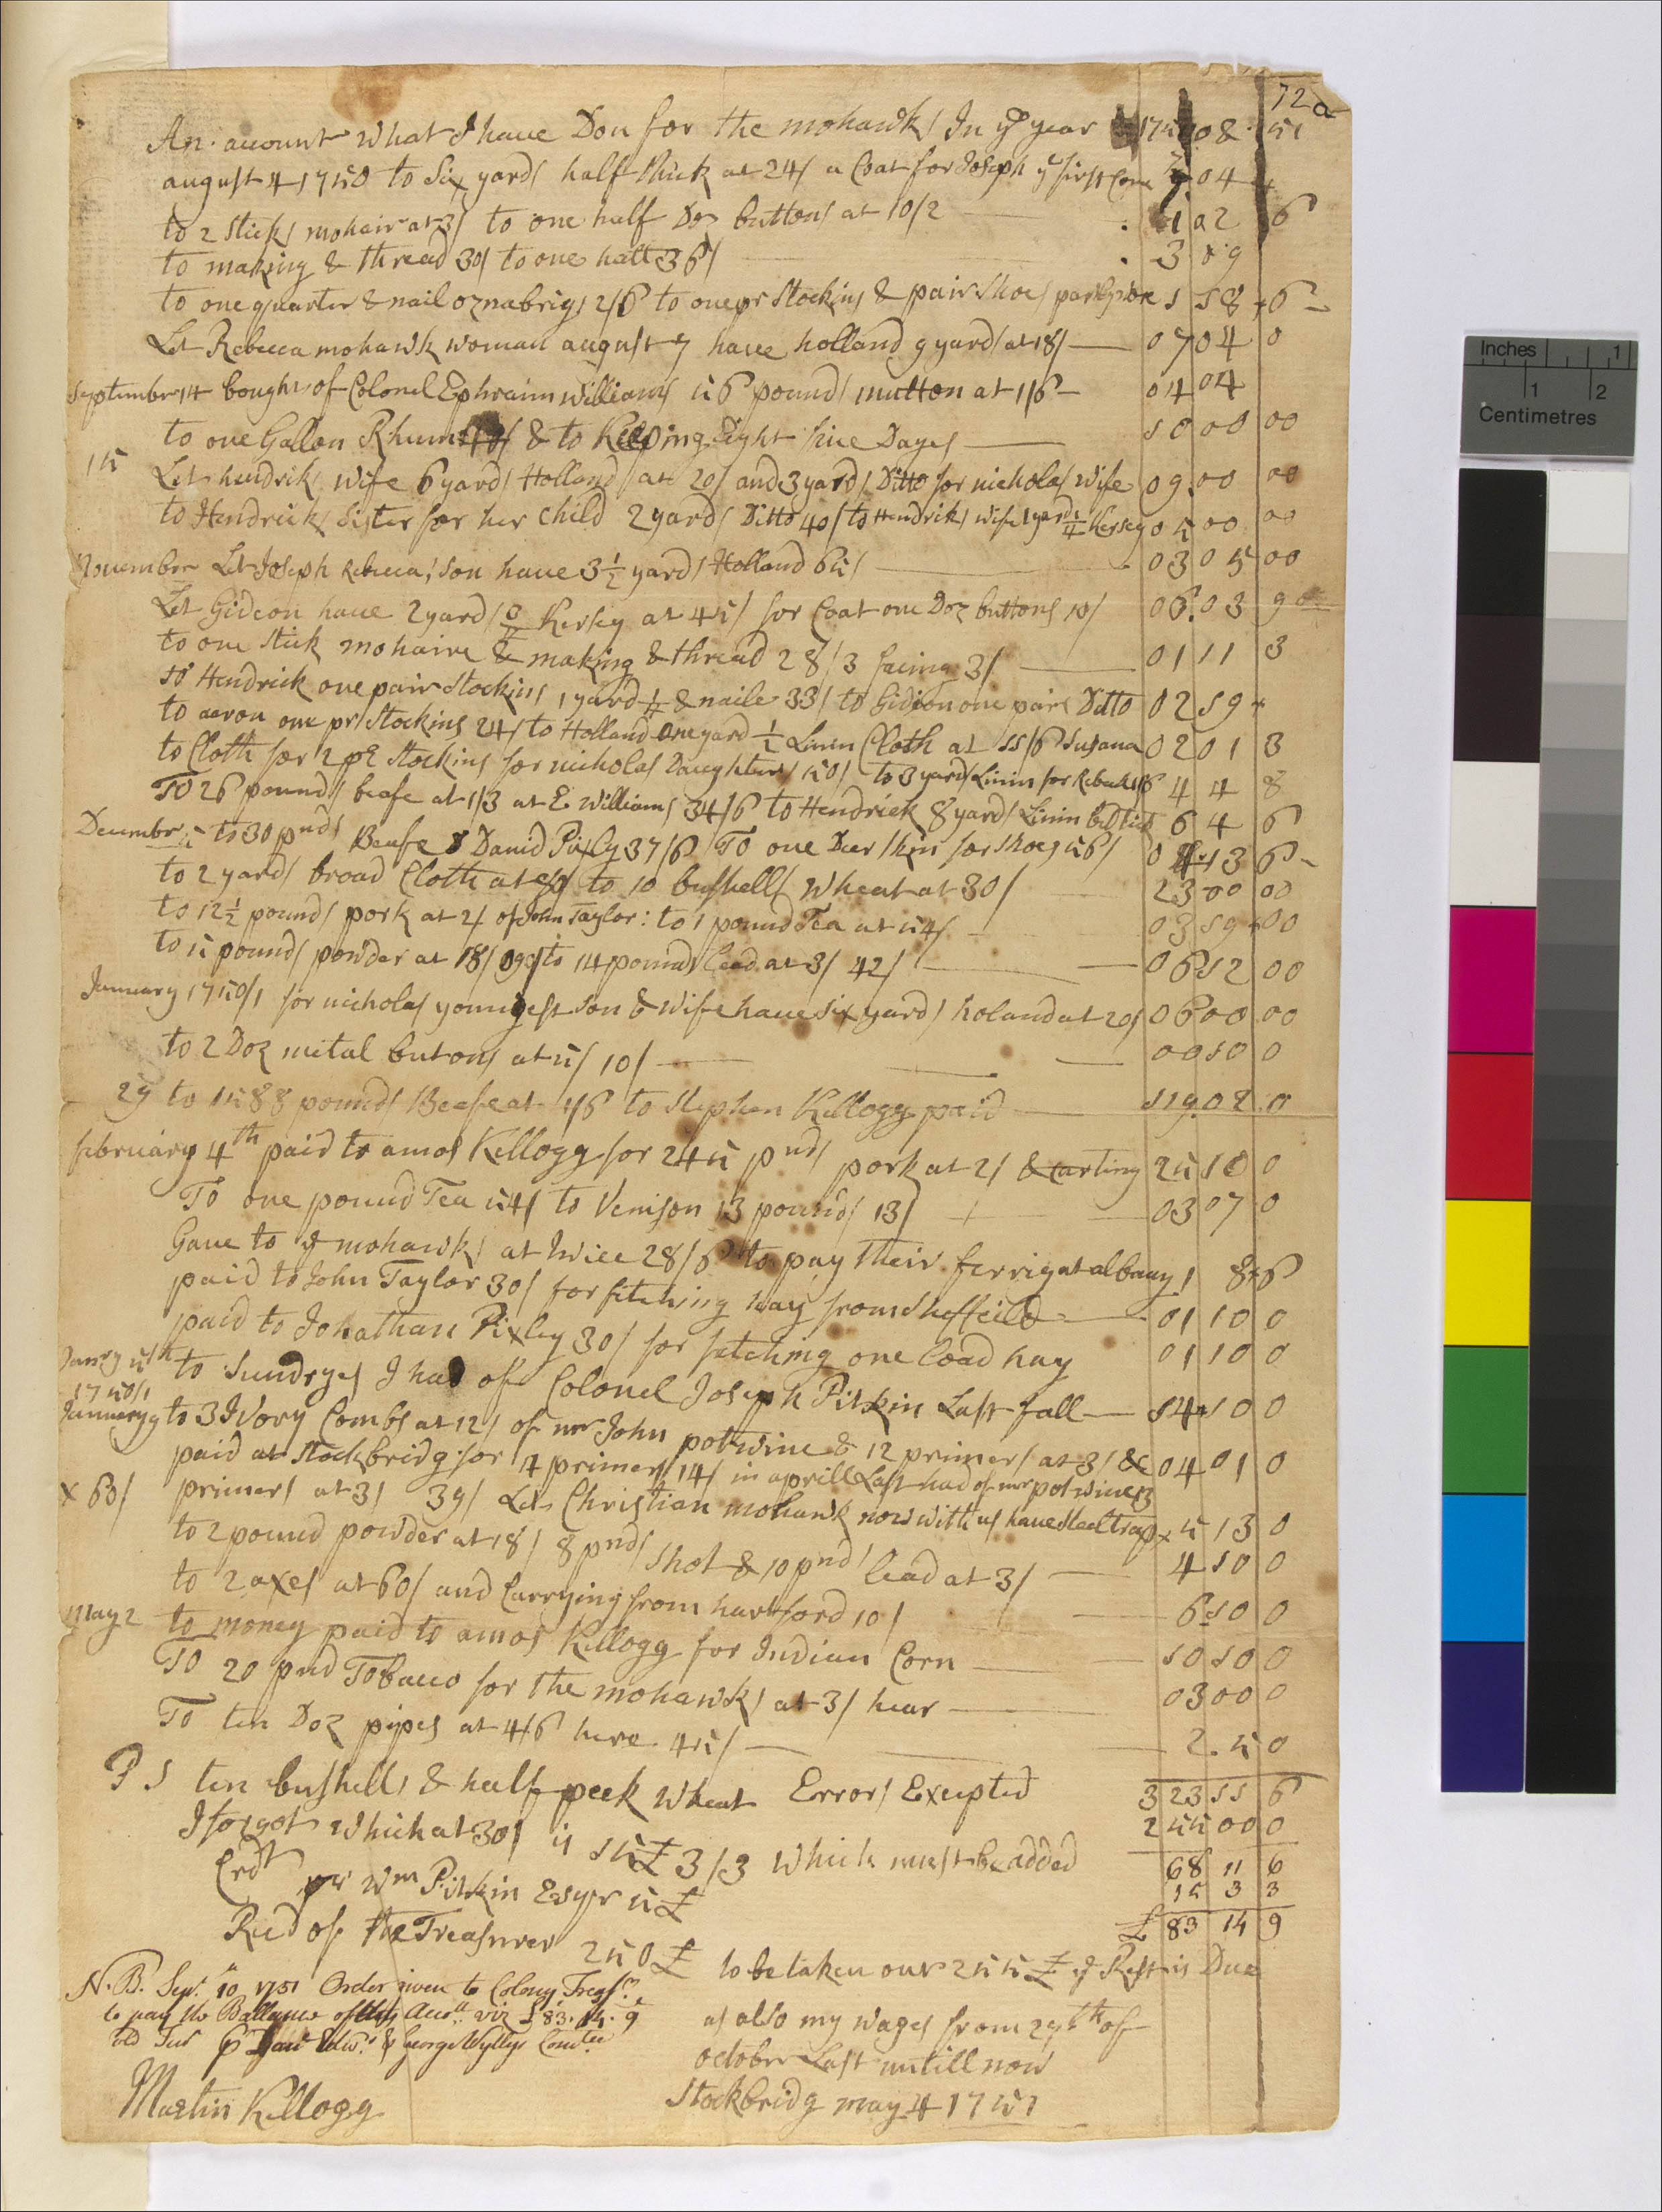 72a
An account what I have Don for the mohawks In ye year 1750 & 51
august 4 1750 to Six yards half thick at 24/ a Coat for Joseph ye first Come 7 04
to 2 Sticks mohair at 3/ to one half Doz buttons at 10/2 1 02 6
to making & thread 30/ to one hatt 36/ 3 09
to one quarter & nail oznabrigs 2/6 to one pr Stockins & pair Shoes 1 18 6
Let Rebecca mohawk woman august 7 have holland 9 yards at 18/ 07 04 0
September 14 bought of Colonel Ephraim Williams 56 pounds mutton at 1/6 04 04
to one Gallon Rhum & to Keeping Eight hive Dayes 10 00 00
15 Let hendriks wife 6 yards Holland at 20/ and 3 yards Ditto for nicholas wife 09 00 00
to Hendricks Sister for her Child 2 yards Ditto 40/ to Hendriks wife 1 yard 1/4 Kersey 05 00 00
November Let Joseph Rebecca's son have 3 1/2 yards Holland 65/ 03 05 00
Let Gideon have 2 yards 3/4 Kersey at 45/ for Coat one Doz buttons 10/ 06 03 9
to one Stick mohaire & making & thread 28/3 facing 3/ 01 11 3
to Hendrick one pair Stockins 1 yard 1/4 & naile 33/ to Gideon one pair Ditto 02 19
to aaron one pr Stockins 24/ to Holland one yard 1/2 Linen Cloth at 11/6 Susana 02 01 3
to Cloth for 2 pr Stockins for nicholas Daughters 50/ to 3 yards Linin for Rebecka 4 4 8
To 26 pounds beafe at 1/3 at E Williams 34/6 to Hendrick 8 yards Linin bedtick 6 4 6
Decembr 5 to 30 pnds Beafe D David Pixly 37/6 To one Deer skin for shoes 56/ 04 13 6
to 2 yards broad Cloth at to 10 bushells wheat at 30/ 23 00 00
to 12 1/2 pounds pork at 2/ of John Taylor: to 1 pound Tea at 54/ 03 19 00
to 5 pounds powder at 18/ 090/ to 14 pounds lead at 3/ 42/ 06 12 00
January 1750/1 for nicholas youngest son & wife have six yards holand at 20/ 06 00 00
to 2 Doz mital butons at 5/ 10/ 00 10 0
29 to 1588 pounds Beefe at 1/6 to Stephen Kellogg paid 119 02 0
february 4th paid to amos Kellogg for 245 pnds pork at 2/ & Carting 25 10 0
To one pound Tea 54/ to Venison 13 pounds 13/ 03 07 0
Gave to ye mohawks at twice 28/6 to pay their ferrig at albany 1 8 6
paid to John Taylor 30/ for fitching hay from Sheffeild 01 10 0
paid to Johathan Pixley 30/ for fetching one load hay 01 10 0
Janry 5th 1750/1 to Sundryes I had of Colonel Joseph Pitkin Last fall 14 10 0
January 9 to 3 Ivory Combs at 12/ of mr John potwine & 12 primers at 3/ &c 04 01 0
paid at Stockbridg for 4 primers 14/ in aprill Last had of mr potwine 13
x 63/ primers at 3/ 39/ Let Christian mohawk now with us have Steel trap x 5 13 0
to 2 pound powder at 18/ 8 pnds shot & 10 pnds lead at 3/ 4 10 0
to 2 axes at 60/ and Carrying from hartford 10/ 6 10 0
May 2 to money paid to amos Kellogg for Indian Corn 10 10 0
To 20 pnd Tobacco for the mohawks at 3/ hear 03 00 0
To ten Doz pipes at 4/6 here 45/ 2 5 0
P S ten bushells & half peek wheat Errors Excepted 323 11 6
I forgot which at 30/ is 15£ 3/3 which must be added 255 00 0
Crdt pr Wm Pitkin Esqr 5£ 68 11 6
15 3 3
Recd of the Treasurer 250£ to be taken our 255£ ye Rest is Due £ 83 14 9
as also my wages from 29th of
october Last untill now
Stockbridg may 4 1751
N.B. Sepr. 10 1751 Order given to Colony Treasr.
to pay the Ballance of this Acctt. viz £83.14.9
& George Wyllys Comtee
Martin Kellogg
Inches 1
1 2
Centimetres